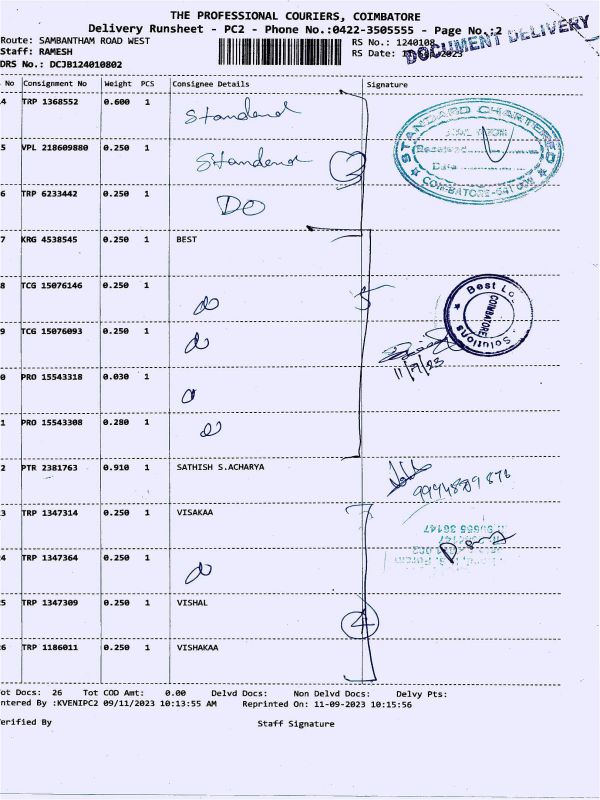 THE PROFESSIONAL COURIERS, COIMBATORE
Delivery Runsheet - PC2 - Phone No.:0422-3505555 - Page No.:2
DOCUMENT DELIVERY
Route: SAMBANTHAM ROAD WEST
RS No.: 1240108
Staff: RAMESH
RS Date: 2023
DRS No.: DCJB124010802
No Consignment No Weight PCS Consignee Details Signature
4 TRP 1368552 0.600 1 Standerd
5 VPL 218609880 0.250 1 Standerd 3
6 TRP 6233442 0.250 1 DO
STANDARD CHARTERED
Received
Date
COIMBATORE-641
7 KRG 4538545 0.250 1 BEST
8 TCG 15076146 0.250 1 do 5
9 TCG 15076093 0.250 1 do
0 PRO 15543318 0.030 1 do
1 PRO 15543308 0.280 1 do
Best Lo
COIMBATORE
Solutions
11/9/23
2 PTR 2381763 0.910 1 SATHISH S.ACHARYA
3 TRP 1347314 0.250 1 VISAKAA
4 TRP 1347364 0.250 1 do
5 TRP 1347309 0.250 1 VISHAL 4
6 TRP 1186011 0.250 1 VISHAKAA
ot Docs: 26 Tot COD Amt: 0.00 Delvd Docs: Non Delvd Docs: Delvy Pts:
ntered By :KVENIPC2 09/11/2023 10:13:55 AM Reprinted On: 11-09-2023 10:15:56
erified By Staff Signature